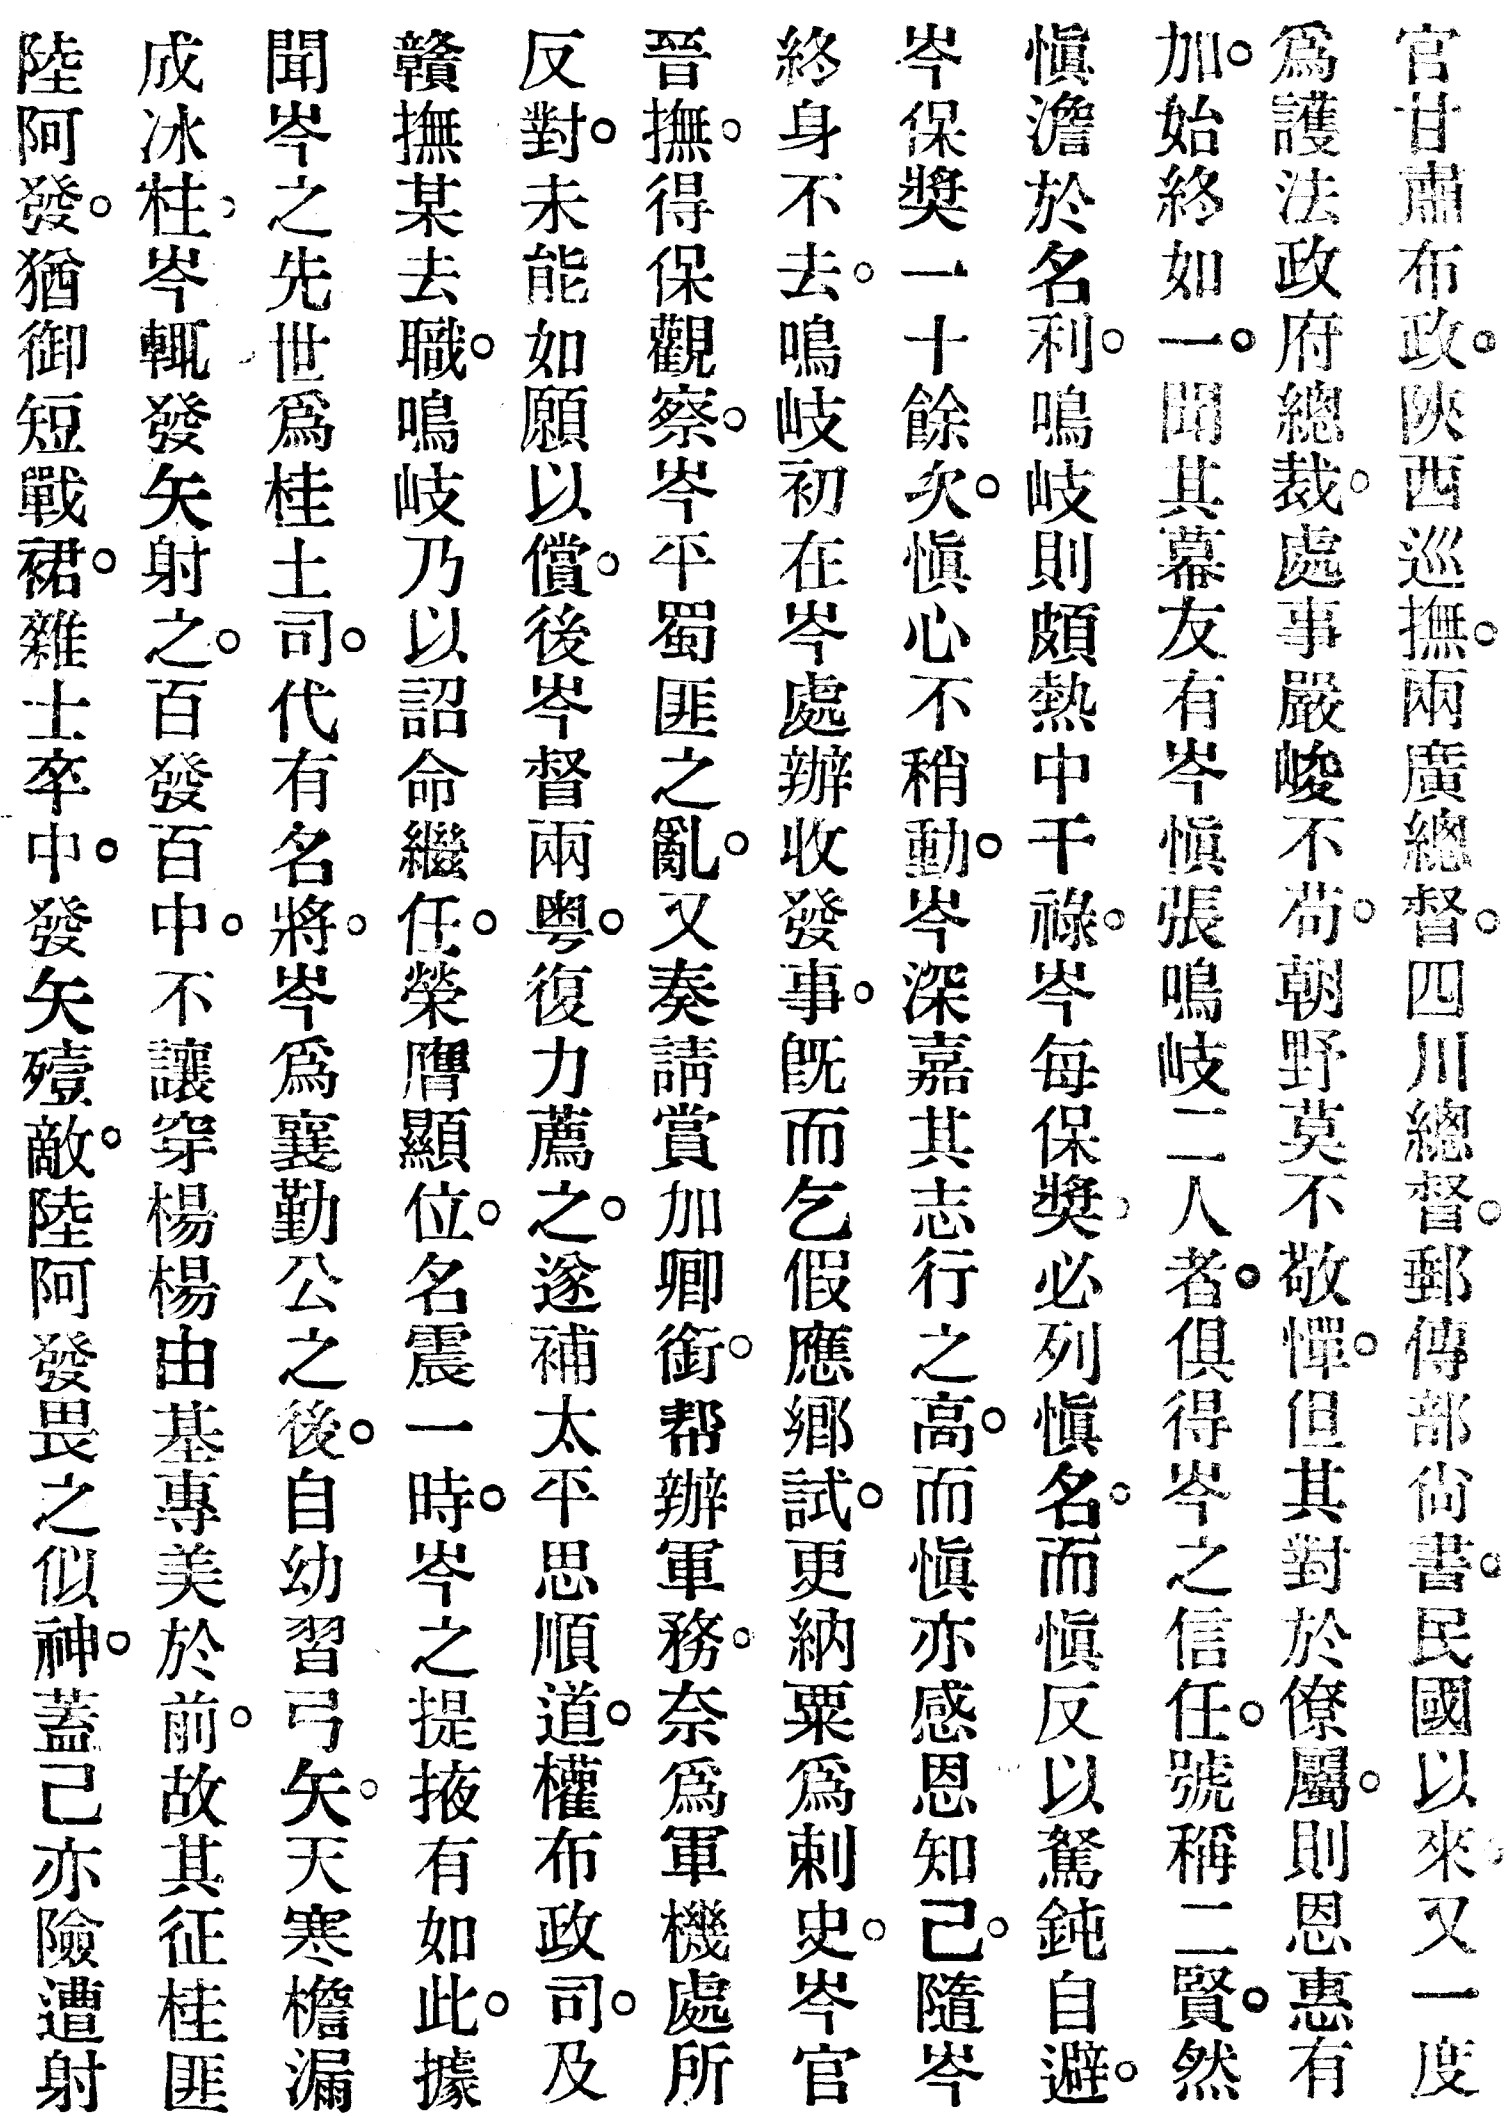 官甘肅布政。陝西巡撫。兩廣總督。四川總督。郵傳部尙書。民國以來。又一度
爲護法政府總裁。處事嚴峻不苟。朝野莫不敬憚。但其對於僚屬。則恩惠有
加。始終如一。聞其幕友有岑愼張鳴岐二人者。俱得岑之信任。號稱二賢。然
愼澹於名利。鳴岐則頗熱中干祿。岑每保獎。必列愼名。而愼反以駑鈍自避。
岑保獎一十餘次。愼心不稍動。岑深嘉其志行之高。而愼亦感恩知己。隨岑
終身不去。鳴岐初在岑處辦收發事。旣而乞假應鄕試。更納粟爲剌史。岑官
晉撫。得保觀察。岑平蜀匪之亂。又奏請賞加卿銜。帮辦軍務。奈爲軍機處所
反對。未能如願以償。後岑督兩粤。復力薦之。遂補太平思順道。權布政司。及
贛撫某去職。鳴岐乃以詔命繼任。榮膺顯位。名震一時。岑之提掖有如此。據
聞岑之先世爲桂土司。代有名將。岑爲襄勤公之後。自幼習弓矢。天寒檐漏
成冰柱。岑輒發矢射之。百發百中。不讓穿楊楊由基專美於前。故其征桂匪
陸阿發。猶御短戰裙。雜士卒中。發矢殪敵。陸阿發畏之似神。蓋己亦險遭射